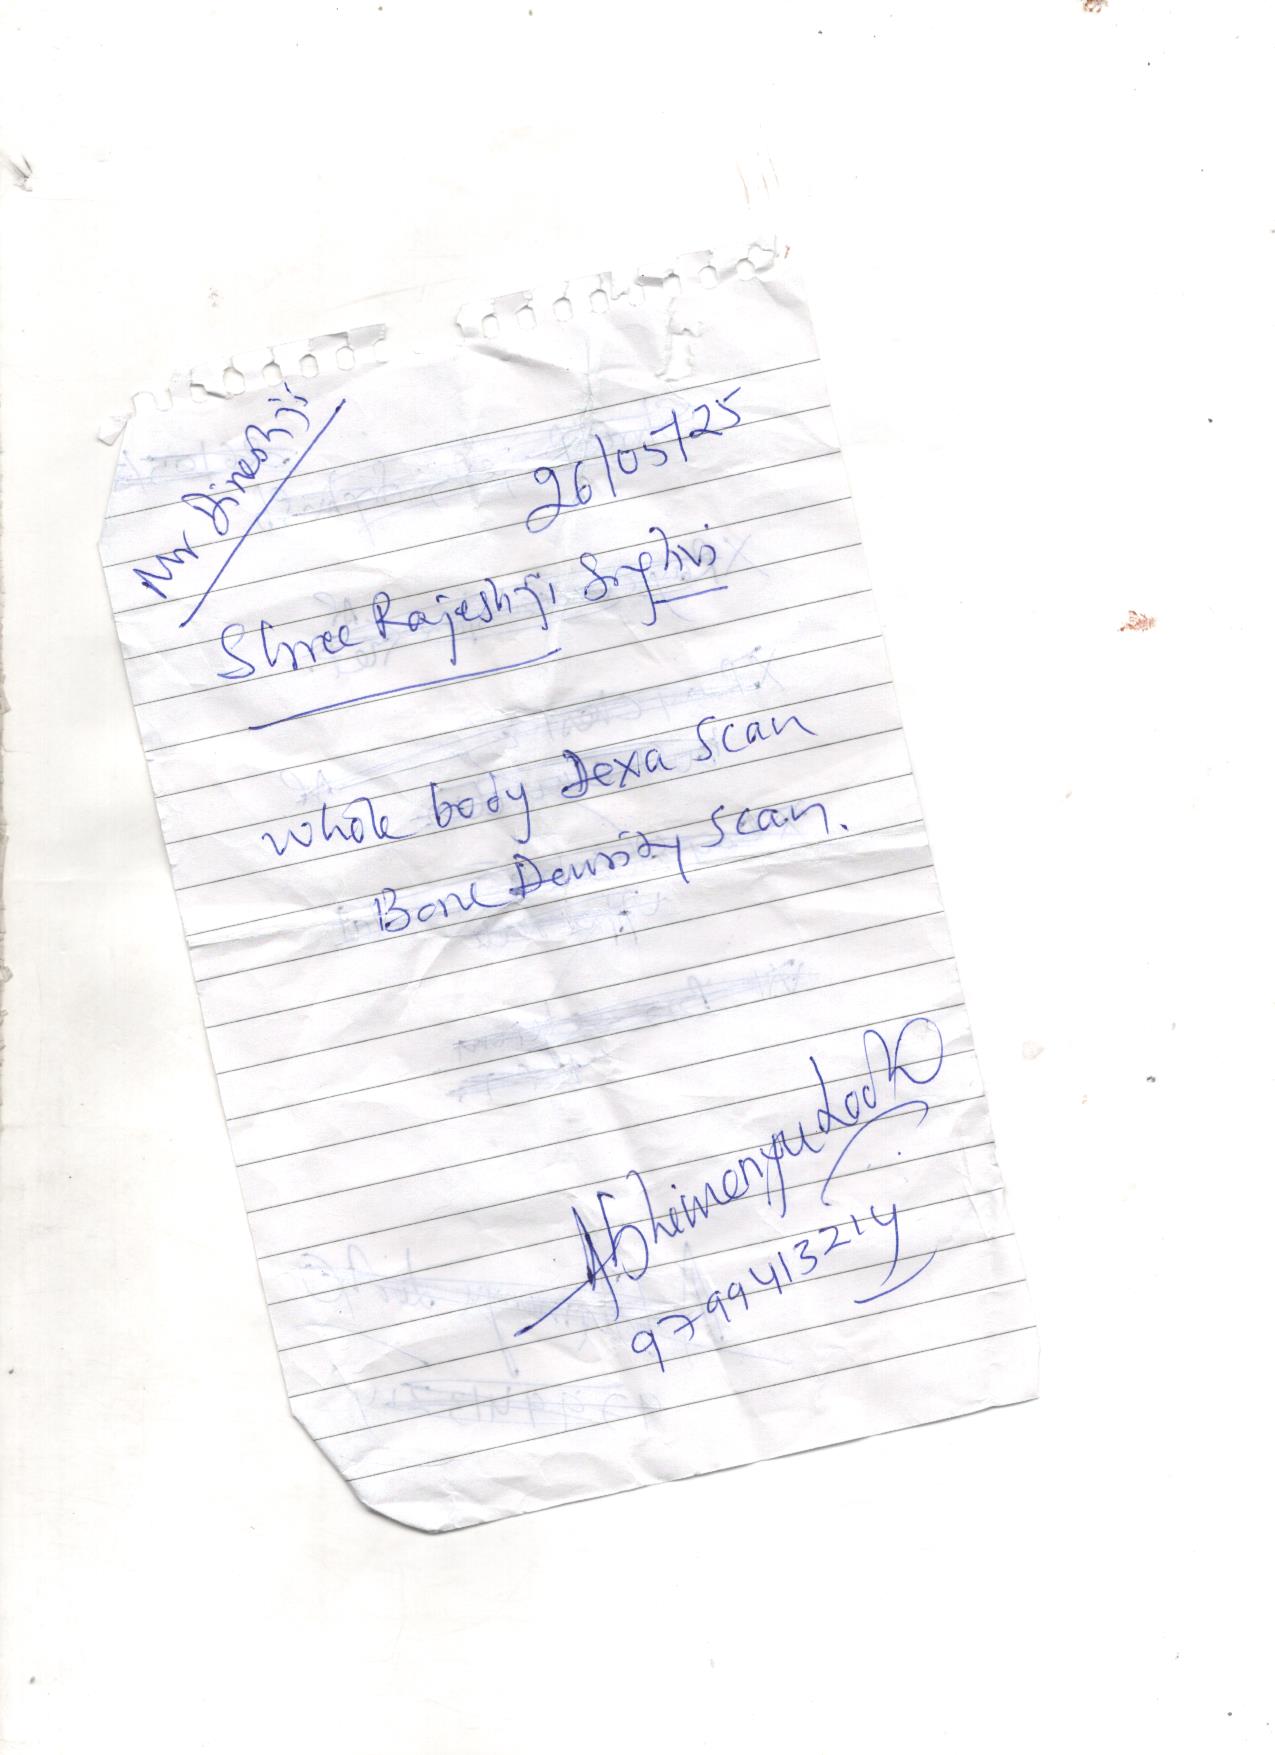 Mr Dineshji
26/05/25
Shree Rajeshji Singhvi
whole body Dexa Scan
Bone Density Scan.
Abhimanyu Lodha
9799413214